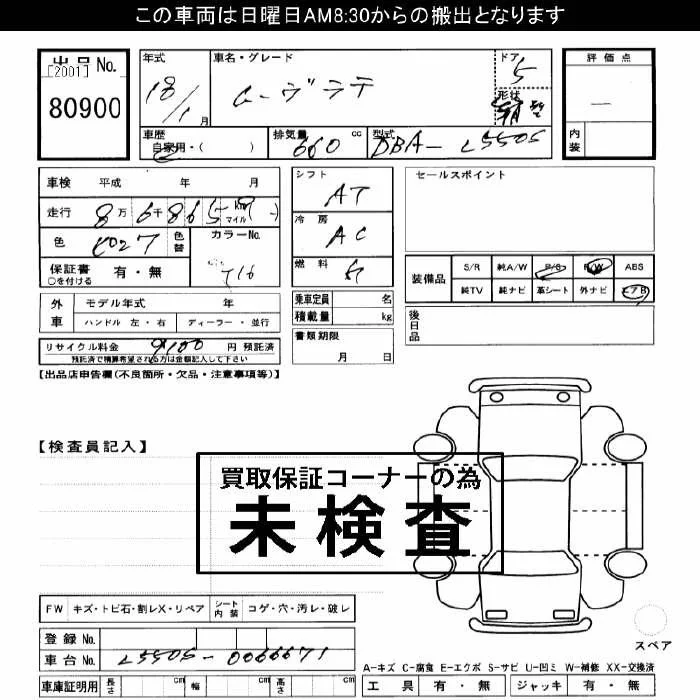 この車両は日曜日AM8:30からの搬出となります
出品 No.
[2001]
80900
年式
18/1 月
車名・グレード
ムーヴラテ
ドア
5
形状
評価点
―
内装
車歴
自家用・( )
排気量
660 cc
型式
DBA-L550S
車検 平成 年 月
走行 8万 6千 8 6 5 km マイル
色
色替
カラーNo.
T16
保証書 有・無
○を付ける
シフト
AT
冷房
AC
燃料
ガ
セールスポイント
装備品
S/R 純A/W P/S P/W ABS
純TV 純ナビ 革シート 外ナビ エアB
外車
モデル年式 年
ハンドル 左・右 ディーラー・並行
乗車定員 名
積載量 kg
後日品
リサイクル料金 9,100 円 預託済
預託済で精算希望される方は金額記入して下さい
書類期限
月 日
【出品店申告欄(不良箇所・欠品・注意事項等)】
【検査員記入】
買取保証コーナーの為
未検査
FW キズ・トビ石・割レX・リペア シート内装 コゲ・穴・汚レ・破レ
登録 No.
車台 No. L550S-0066671
車庫証明用 長さ cm 幅 cm 高さ cm
スペア
A-キズ C-腐食 E-エクボ S-サビ U-凹ミ W-補修 XX-交換済
工具 有・無 ジャッキ 有・無